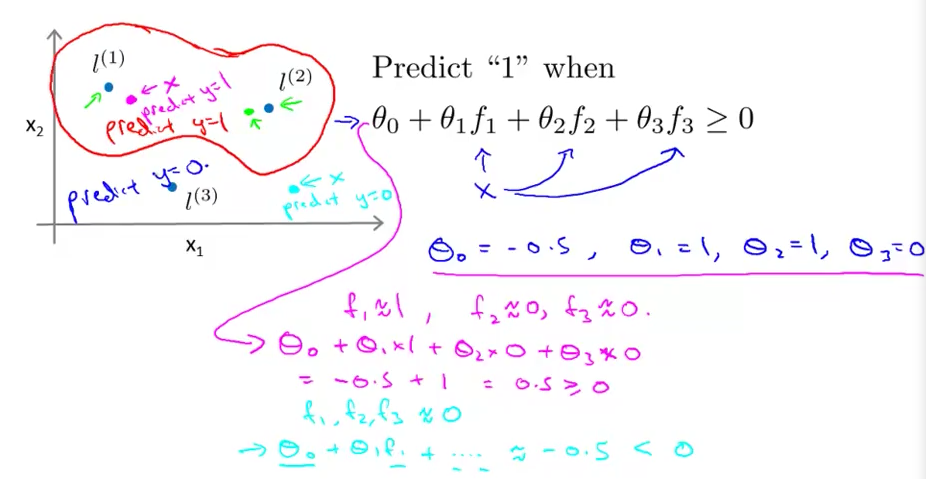 l⁽¹⁾
← x
predict y=1
l⁽²⁾
predict y=1
x₂
predict y=0.
l⁽³⁾
← x
predict y=0
x₁
Predict “1” when
→ θ₀ + θ₁f₁ + θ₂f₂ + θ₃f₃ ≥ 0
x
θ₀ = -0.5, θ₁=1, θ₂=1, θ₃=0
f₁≈1, f₂≈0, f₃≈0.
→ θ₀ + θ₁×1 + θ₂×0 + θ₃×0
= -0.5 + 1 = 0.5 ≥ 0
f₁, f₂, f₃ ≈ 0
→ θ₀ + θ₁f₁ + .... ≈ -0.5 < 0